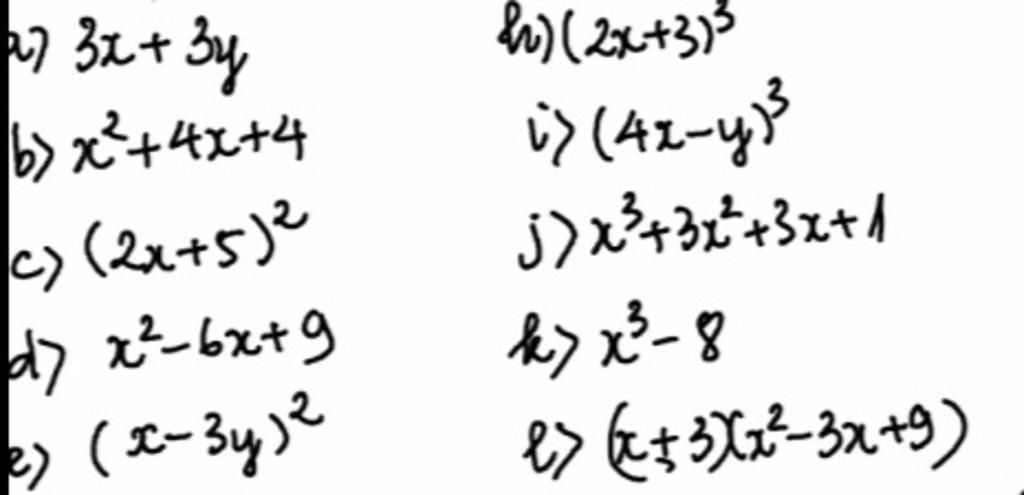 a) 3x + 3y
b) x² + 4x + 4
c) (2x + 5)²
d) x² - 6x + 9
e) (x - 3y)²
h) (2x + 3)³
i) (4x - y)³
j) x³ + 3x² + 3x + 1
k) x³ - 8
l) (x + 3)(x² - 3x + 9)